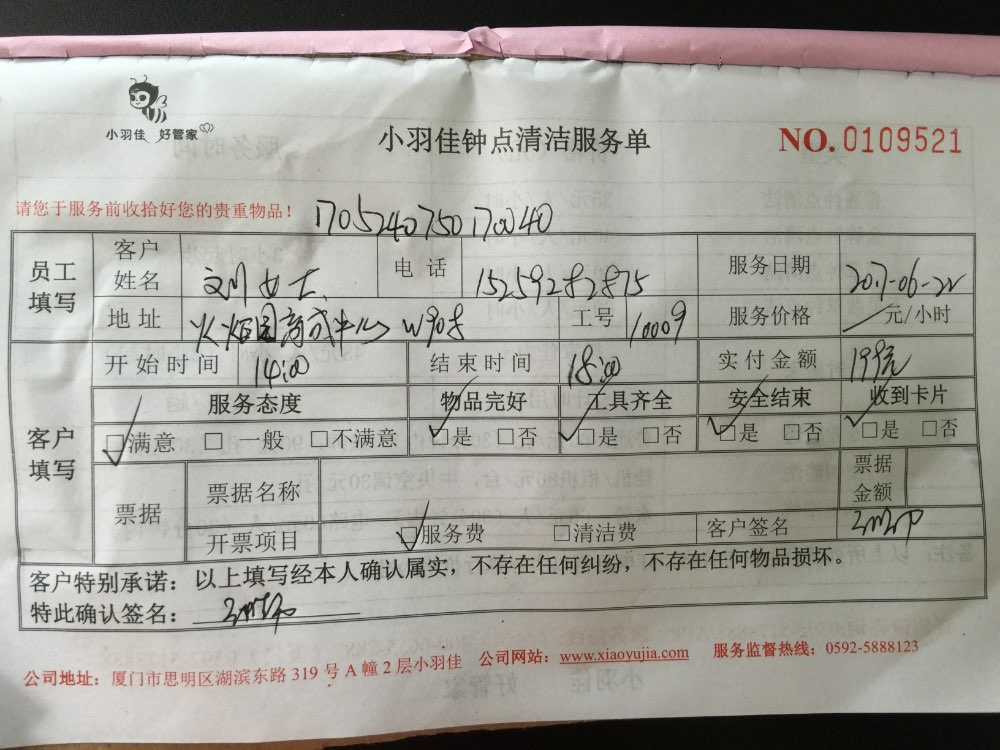 小羽佳 好管家
小羽佳钟点清洁服务单
NO.0109521
请您于服务前收拾好您的贵重物品！
1705240750170040
员工填写 客户姓名 刘女士 电话 15259282875 服务日期 2017-06-22
地址 火炬园育成中心W908 工号 10009 服务价格 元/小时
开始时间 14:00 结束时间 18:00 实付金额 199元
客户填写 服务态度 物品完好 工具齐全 安全结束 收到卡片
☑满意 □一般 □不满意 ☑是 □否 ☑是 □否 ☑是 □否 ☑是 □否
票据 票据名称 票据金额
开票项目 ☑服务费 □清洁费 客户签名
客户特别承诺：以上填写经本人确认属实，不存在任何纠纷，不存在任何物品损坏。
特此确认签名：
公司地址：厦门市思明区湖滨东路 319 号 A 幢 2 层小羽佳 公司网站：www.xiaoyujia.com 服务监督热线：0592-5888123